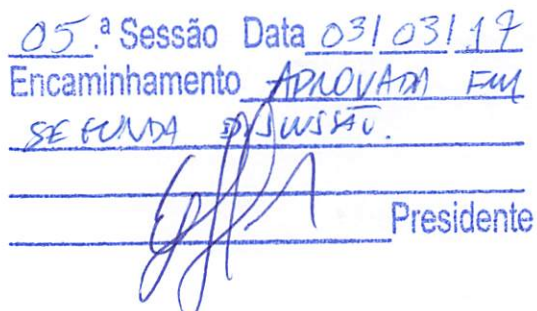 05.ª Sessão Data 03/03/17
Encaminhamento APROVADA EM
SEGUNDA DISCUSSÃO.
Presidente